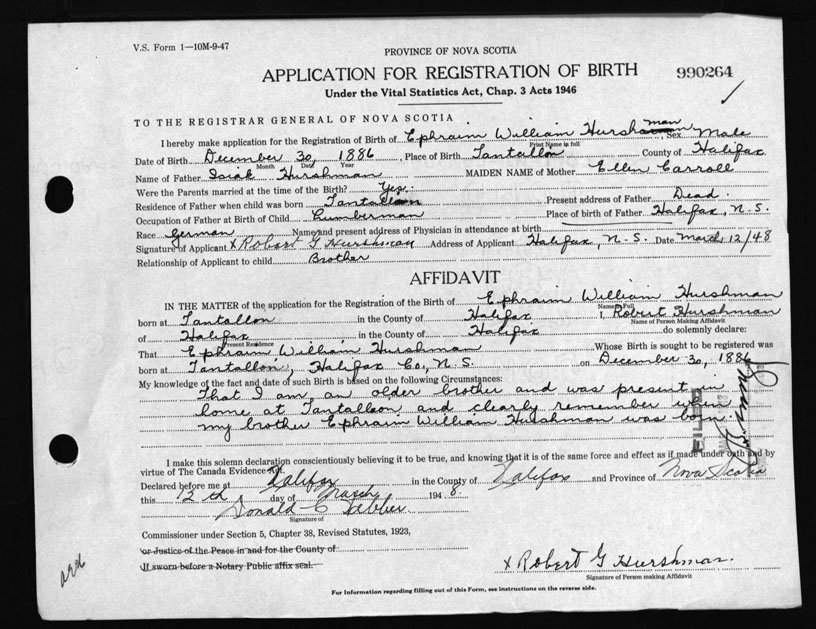 V.S. Form 1—10M-9-47
PROVINCE OF NOVA SCOTIA
APPLICATION FOR REGISTRATION OF BIRTH
990264
Under the Vital Statistics Act, Chap. 3 Acts 1946
TO THE REGISTRAR GENERAL OF NOVA SCOTIA
I hereby make application for the Registration of Birth of Ephraim William Hurshman, Sex Male
Print Name in full
Date of Birth December 30, 1886, Place of Birth Tantallon County of Halifax
Month Date Year
Name of Father Isiah Hurshman MAIDEN NAME of Mother Ellen Carroll
Were the Parents married at the time of the Birth? Yes.
Residence of Father when child was born Tantallon Present address of Father Dead.
Occupation of Father at Birth of Child Lumberman Place of birth of Father Halifax, N.S.
Race German Name and present address of Physician in attendance at birth
Signature of Applicant x Robert G Hurshman Address of Applicant Halifax, N.S. Date March 12/48
Relationship of Applicant to child Brother
AFFIDAVIT
IN THE MATTER of the application for the Registration of the Birth of Ephraim William Hurshman
Name in Full
born at Tantallon in the County of Halifax I, Robert Hurshman
Name of Person Making Affidavit
of Halifax in the County of Halifax do solemnly declare:
Present Residence
That Ephraim William Hurshman Whose Birth is sought to be registered was
born at Tantallon, Halifax Co., N.S. on December 30, 1886
My knowledge of the fact and date of such Birth is based on the following Circumstances:
That I am an older brother and was present in
home at Tantallon and clearly remember when
my brother Ephraim William Hurshman was born
FILED
I make this solemn declaration conscientiously believing it to be true, and knowing that it is of the same force and effect as if made under oath and by
virtue of The Canada Evidence Act.
Declared before me at Halifax in the County of Halifax and Province of Nova Scotia
this 12th day of March 1948.
Donald C
Signature of
Commissioner under Section 5, Chapter 38, Revised Statutes, 1923,
or Justice of the Peace in and for the County of
If sworn before a Notary Public affix seal.
x Robert G Hurshman.
Signature of Person making Affidavit
For Information regarding filling out of this Form, see instructions on the reverse side.